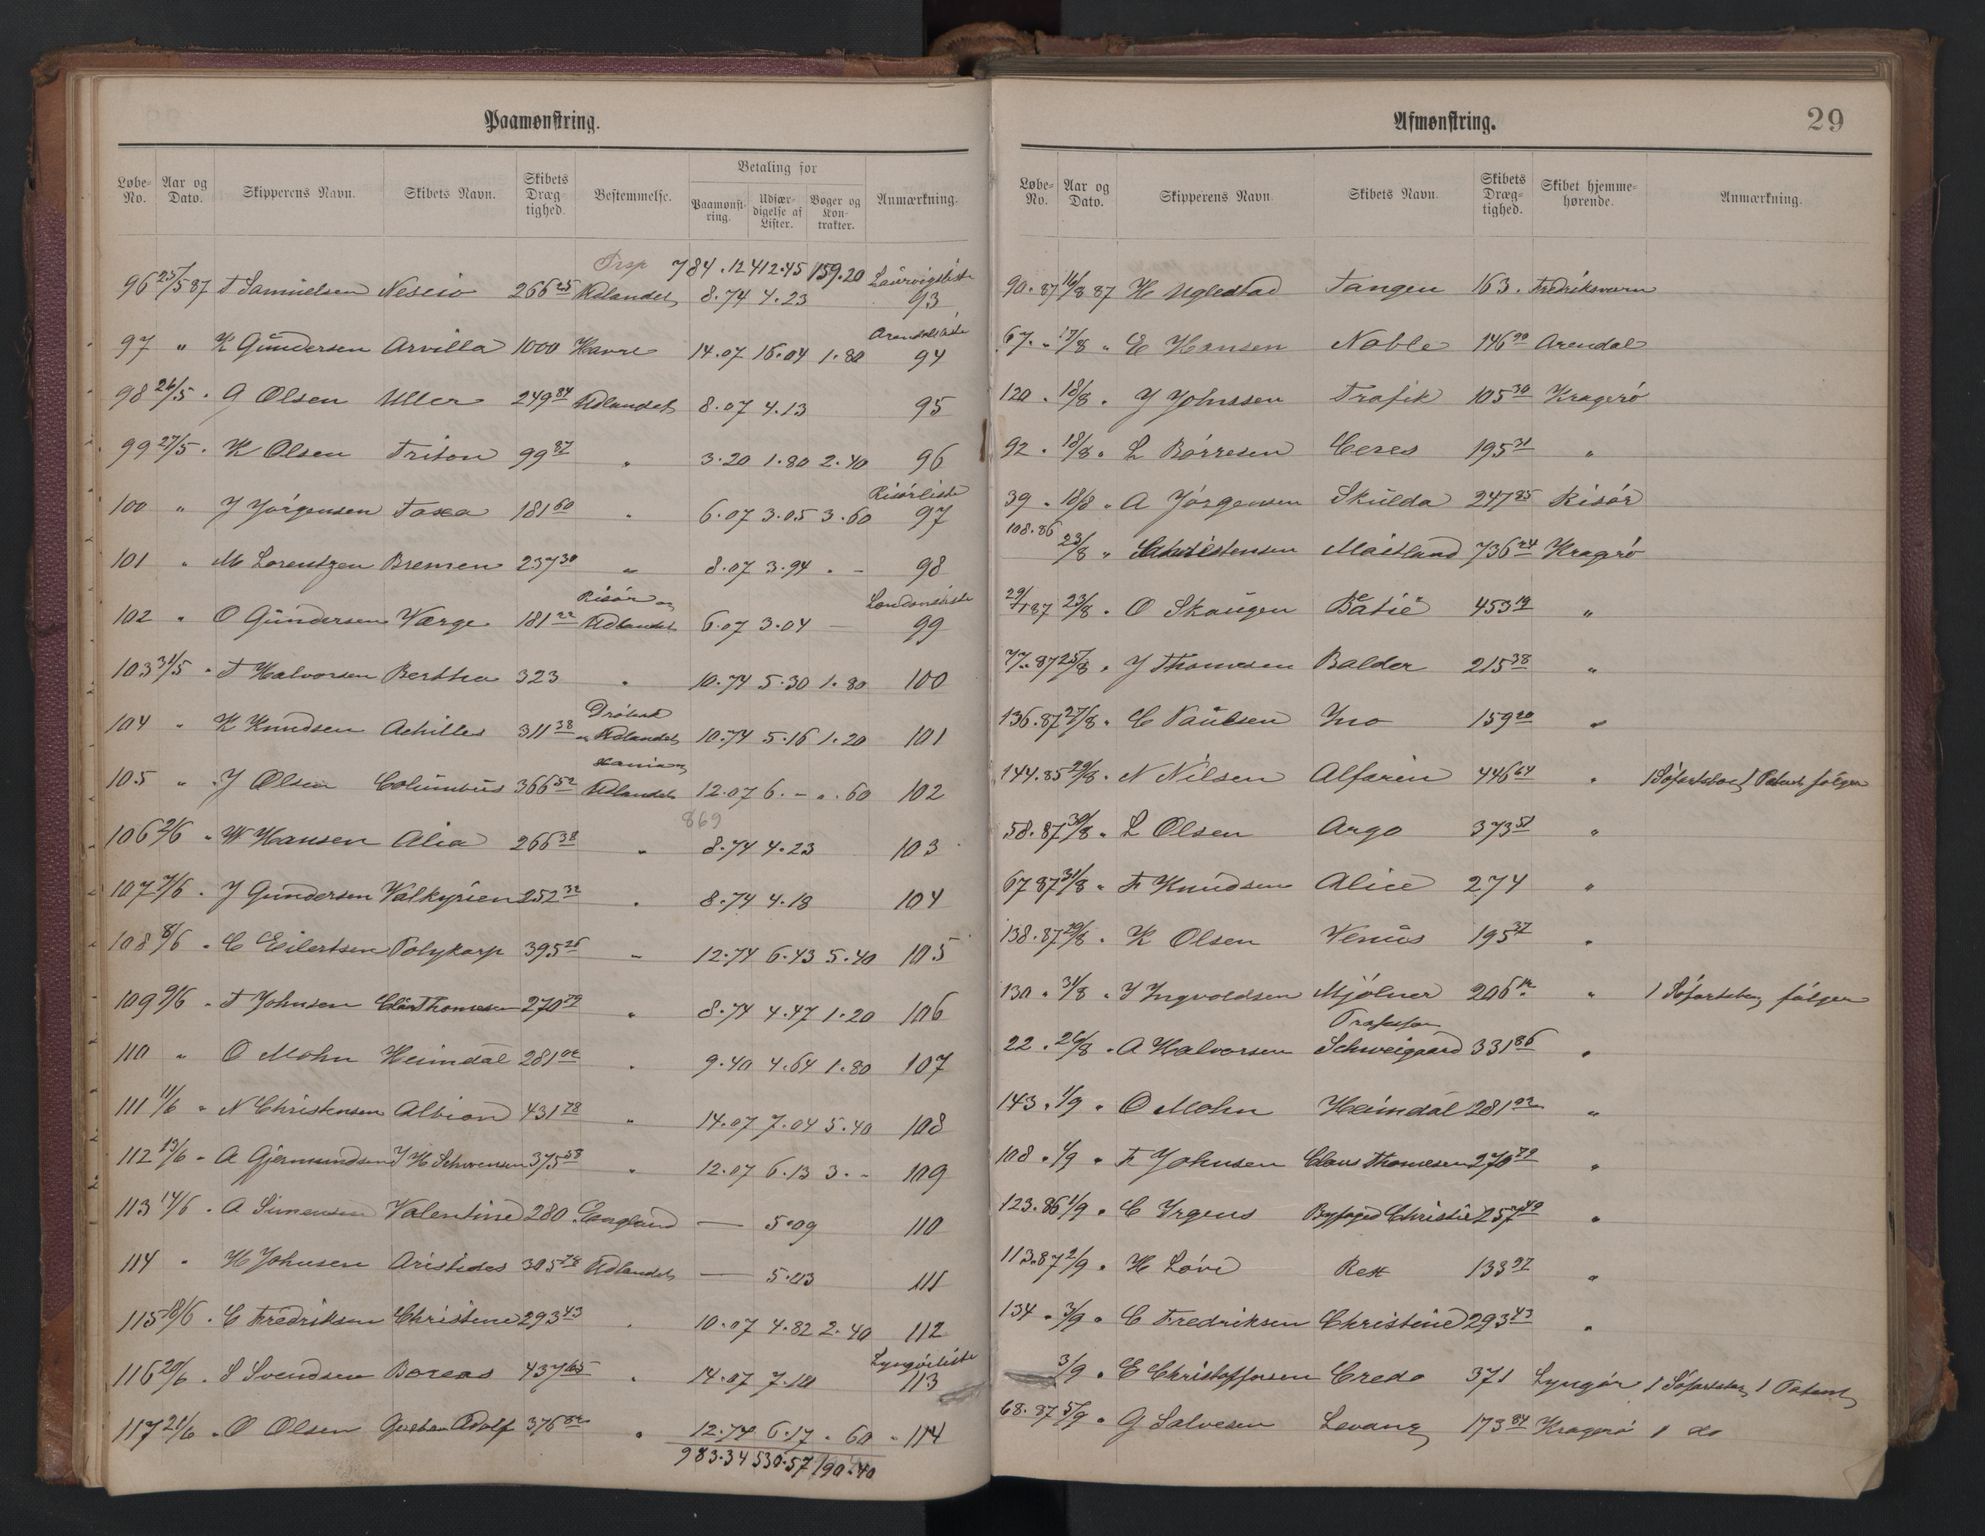 Paamønstring.
Løbe-No. Aar og Dato. Skipperens Navn. Skibets Navn. Skibets Dræg-tighed. Bestemmelse. Betaling for Paamønst-ring. Udfær-digelse af Lister. Bøger og Kon-trakter. Anmærkning.
Trsp 784.12 412.45 159.20 Laurvigsliste
96 25/5 87 T Samuelsen Nescio 266 25 Udlandet 8.74 4.23 93
Arendalsliste
97 " K Gundersen Arvilla 1000 Havre 14.07 16.04 1.80 94
98 26/5 . G Olsen Uller 249 84 Udlandet 8.07 4.13 95
99 27/5 . K Olsen Triton 99 87 " 3.20 1.80 2.40 96
Risörliste
100 " J Jörgensen Taxa 181 60 " 6.07 3.05 3.60 97
101 " M Lorentzen Bremen 237 30 " 8.07 3.94 . - 98
Risör og Londonliste
102 " O Gundersen Værge 181 22 Udlandet 6.07 3.04 - 99
103 31/5 " T Halvorsen Bertha 323 " 10.74 5.30 1.80 100
Dröbak
104 " K Knudsen Achilles 311 38 og Udlandet 10.74 5.16 1.20 101
105 " J Olsen Columbus 366 52 Udlandet 12.07 6.- ". 60 102
869
106 2/6 " W Hansen Alia 266 38 " 8.74 4.23 103
107 7/6 . J Gundersen Valkyrien 252 32 " 8.74 4.18 104
108 8/6 " C Eilertsen Polykarp 395 26 " 12.74 6.43 5.40 105
109 9/6 " T Johnsen Claus Thomesen 270 79 " 8.74 4.47 1.20 106
110 " O Mohn Heimdal 281 02 " 9.40 4.64 1.80 107
111 11/6 " N Christensen Albion 431 78 " 14.07 7.04 5.40 108
112 13/6 " A Gjermundsen J H Schwensen 375 58 " 12.07 6.13 3.- 109
113 14/6 . A Simensen Valentine 280 England - 5.09 110
114 " H Johnsen Aristides 305 78 Udlandet - 5.23 111
115 18/6 . C Fredriksen Christine 293 43 " 10.07 4.82 2.40 112
Lyngörliste
116 20/6 . S Svendsen Boreas 437 65 " 14.07 7.10 113
117 21/6 . O Olsen Gustav Adolf 376 82 " 12.74 6.17 ". 60 " 114
983.34 530.57 190.40
Afmønstring. 29
Løbe-No. Aar og Dato. Skipperens Navn. Skibets Navn. Skibets Dræg-tighed. Skibet hjemme-hørende. Anmærkning.
90.87 16/8 87 H Uglestad Tangen 163. Fredriksværn
67. " 17/8 " E Hansen Noble 146 90 Arendal
120 . 18/8 " J Johnssen Trafik 105 30 Kragerö
92 . 18/8 " L Börresen Ceres 195 31 "
39 . 18/8 " A Jörgensen Skulda 247 85 Risör
108.86 23/8 " Christensen Maitland 736 24 Kragerö
87 23/8 . O Skaugen Bätie 453 19 "
77.87 25/8 . J Thomesen Balder 215 38 "
136.87 27/8 " C Paulsen Ino 159 20 "
144.85 29/8 . N Nilsen Alfarin 446 64 " 1 Söfartsbog 1 Patent fölger
58.87 30/8 " L Olsen Argo 373 51 "
67 87 31/8 " F Knudsen Alice 274 "
138.87 29/8 . K Olsen Venus 195 37 "
130 " 31/8 " J Ingvoldsen Mjölner 206 12 " 1 Söfartsbog fölger
Professor
22 . 26/8 . A Halvorsen Schweigaard 331 86 "
143 . 1/9 " O Mohn Heimdal 281 02 "
108 . 1/9 " T Johnsen Claus Thomesen 270 79 "
123.86 1/9 " C Irgens Byfoged Christie 257 49 "
113.87 2/9 . H Löve Rex 133 97 "
134 " 3/9 " C Fredriksen Christine 293 43 "
3/9 " E Christoffersen Credo 371 Lyngör 1 Söfartsbog 1 Patent
68.87 5/9 " G Salvesen Levang 173 84 Kragerö 1 do